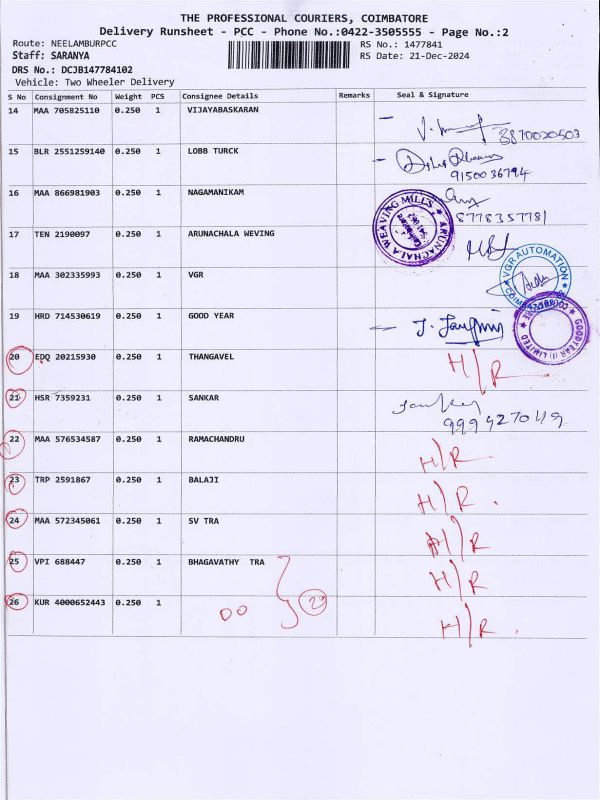 THE PROFESSIONAL COURIERS, COIMBATORE
Delivery Runsheet - PCC - Phone No.:0422-3505555 - Page No.:2
Route: NEELAMBURPCC
Staff: SARANYA
DRS No.: DCJB147784102
Vehicle: Two Wheeler Delivery
RS No.: 1477841
RS Date: 21-Dec-2024
S No Consignment No Weight PCS Consignee Details Remarks Seal & Signature
14 MAA 705825110 0.250 1 VIJAYABASKARAN
15 BLR 2551259140 0.250 1 LOBB TURCK
9150036794
16 MAA 866981903 0.250 1 NAGAMANIKAM
8778357781
17 TEN 2190097 0.250 1 ARUNACHALA WEVING
ARUNACHALA WEAVING MILLS
18 MAA 302335993 0.250 1 VGR
VGR AUTOMATION
19 HRD 714530619 0.250 1 GOOD YEAR
GOODYEAR (I) LIMITED
20 EDQ 20215930 0.250 1 THANGAVEL H/R
21 HSR 7359231 0.250 1 SANKAR
22 MAA 576534587 0.250 1 RAMACHANDRU H/R
23 TRP 2591867 0.250 1 BALAJI H/R
24 MAA 572345061 0.250 1 SV TRA H/R
25 VPI 688447 0.250 1 BHAGAVATHY TRA H/R
26 KUR 4000652443 0.250 1 H/R